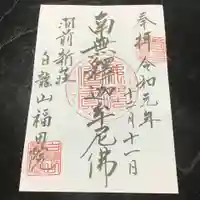 奉拝 令和元年
十二月十一日
南無釋迦牟尼佛
羽前新荘
白龍山福田院